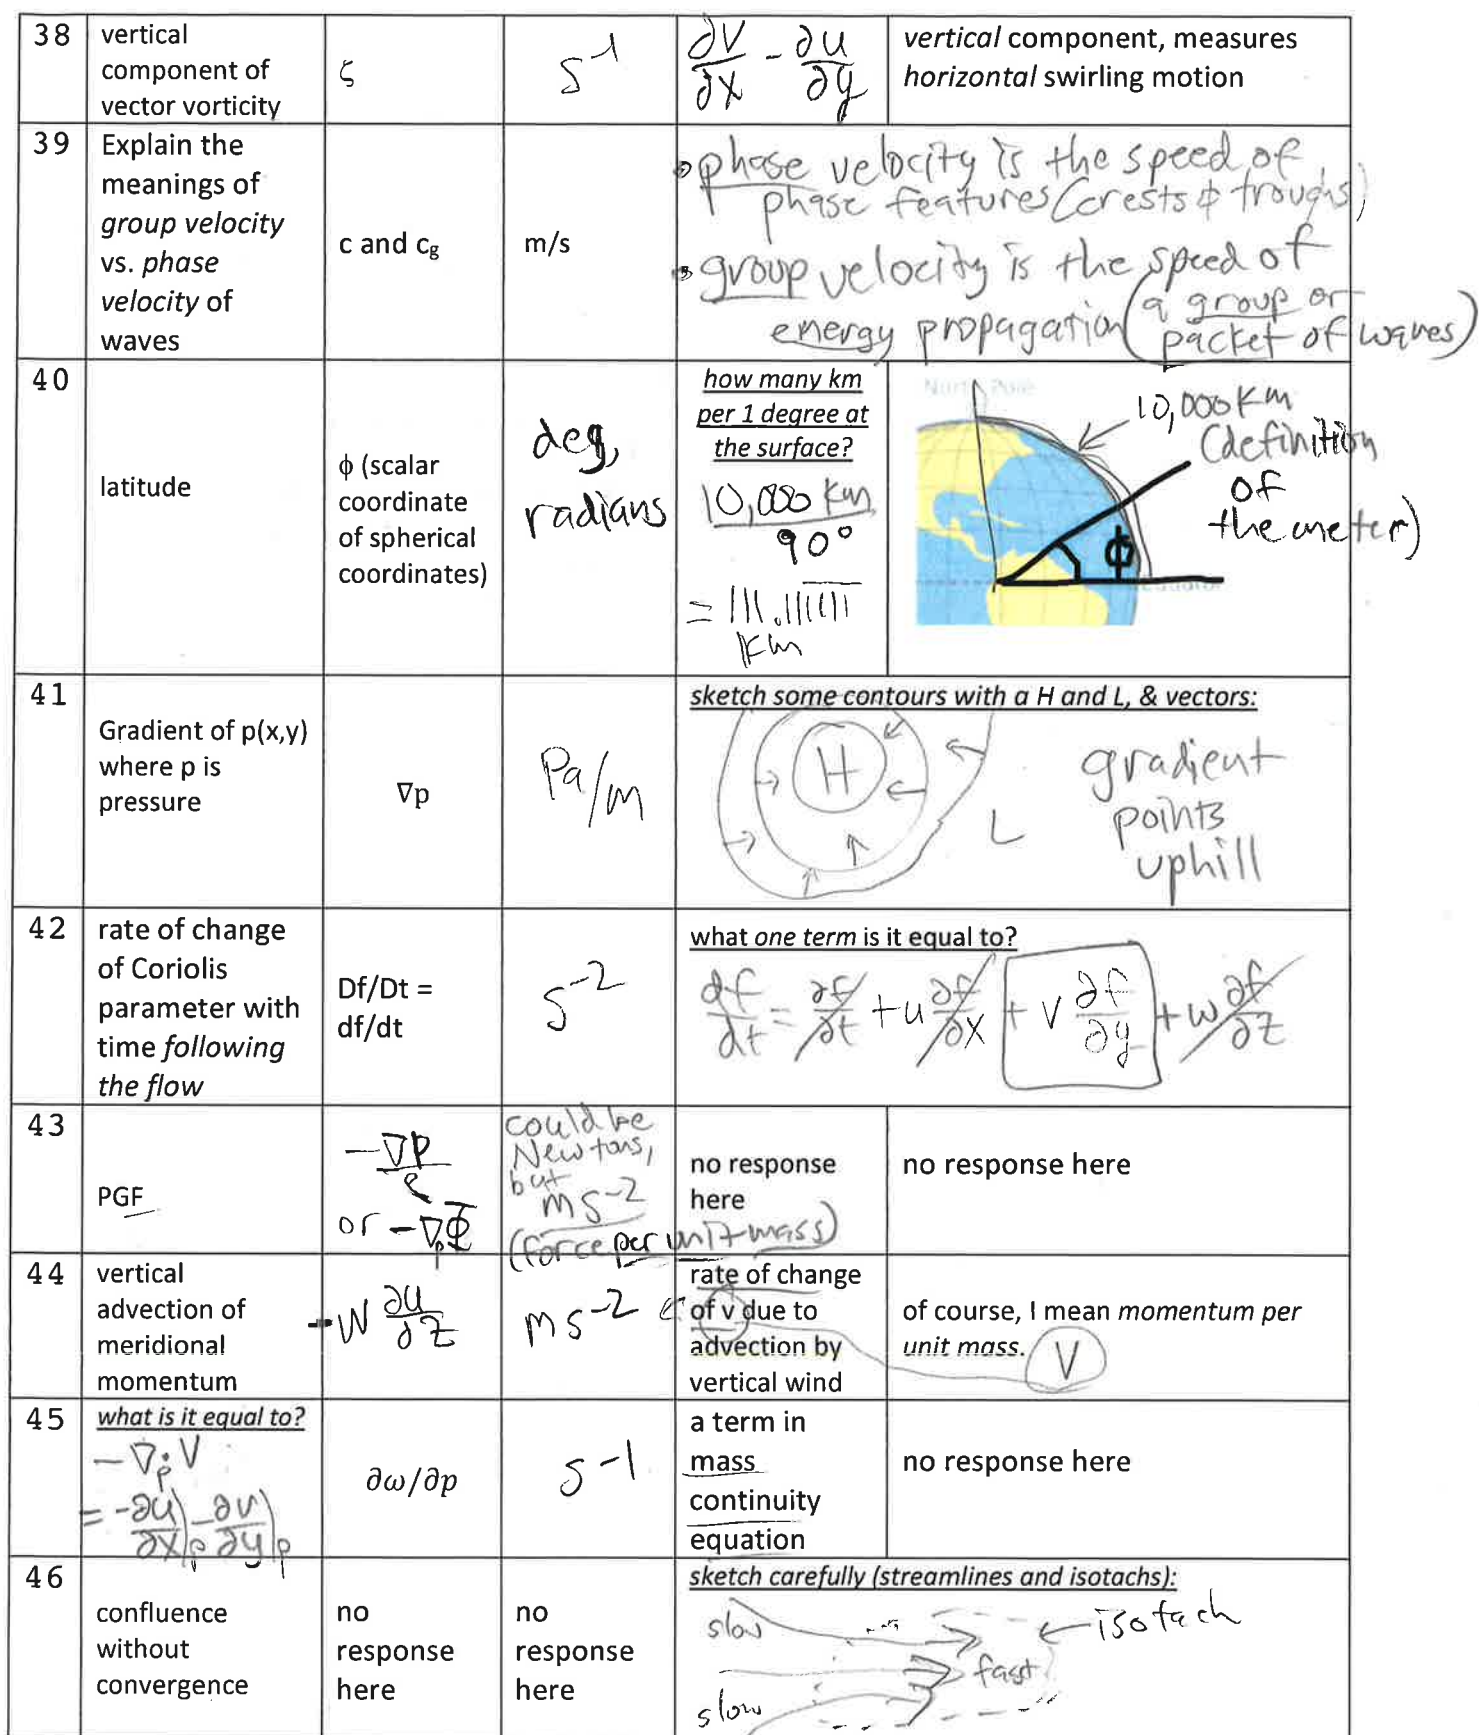 38
vertical
component of
vector vorticity
ζ
s⁻¹
∂v/∂x - ∂u/∂y
vertical component, measures
horizontal swirling motion
39
Explain the
meanings of
group velocity
vs. phase
velocity of
waves
c and c_g
m/s
phase velocity is the speed of
phase features (crests & troughs)
group velocity is the speed of
energy propagation (a group or
packet of waves)
40
latitude
ϕ (scalar
coordinate
of spherical
coordinates)
deg,
radians
how many km
per 1 degree at
the surface?
10,000 km
90°
= 111.111111
km
North Pole
10,000 km
(definition
of
the meter)
ϕ
Equator
41
Gradient of p(x,y)
where p is
pressure
∇p
Pa/m
sketch some contours with a H and L, & vectors:
H
L
gradient
points
uphill
42
rate of change
of Coriolis
parameter with
time following
the flow
Df/Dt =
df/dt
s⁻²
what one term is it equal to?
df/dt = ∂f/∂t + u ∂f/∂x + v ∂f/∂y + w ∂f/∂z
43
PGF
-∇p/ρ
or -∇ₚΦ
could be
Newtons,
but
m s⁻²
(force per unit mass)
no response
here
no response here
44
vertical
advection of
meridional
momentum
-w ∂u/∂z
m s⁻²
rate of change
of v due to
advection by
vertical wind
of course, I mean momentum per
unit mass.
V
45
what is it equal to?
-∇ₚ·V
= -∂u/∂x|ₚ - ∂v/∂y|ₚ
∂ω/∂p
s⁻¹
a term in
mass
continuity
equation
no response here
46
confluence
without
convergence
no
response
here
no
response
here
sketch carefully (streamlines and isotachs):
slow
isotach
fast
slow